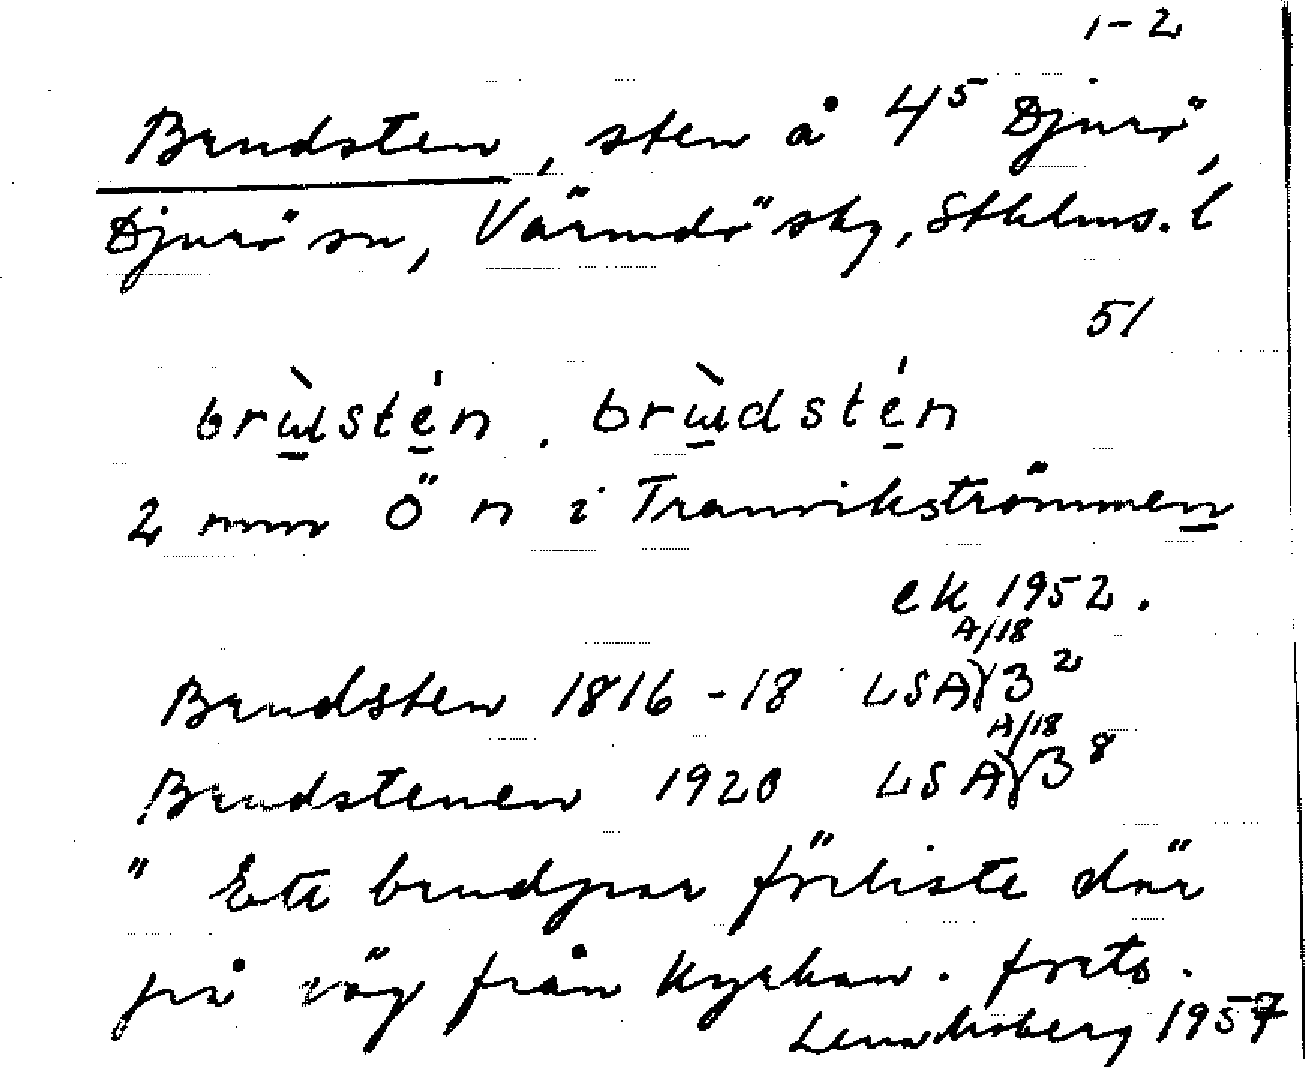 1-2
Brudsten, sten å 4⁵ Djurö,
Djurö sn, Värmdö sky, Sthlms. l
51
brɯ̀stén . brɯ̀dstén
2 mm Ö n i Tranvikströmmen
ek 1952.
A/18
Brudsten 1816-18 LSA)3²
A/18
Brudstenen 1920 LSA)3⁸
" Ett brudpar förliste där
på väg från kyrkan. forts.
1957